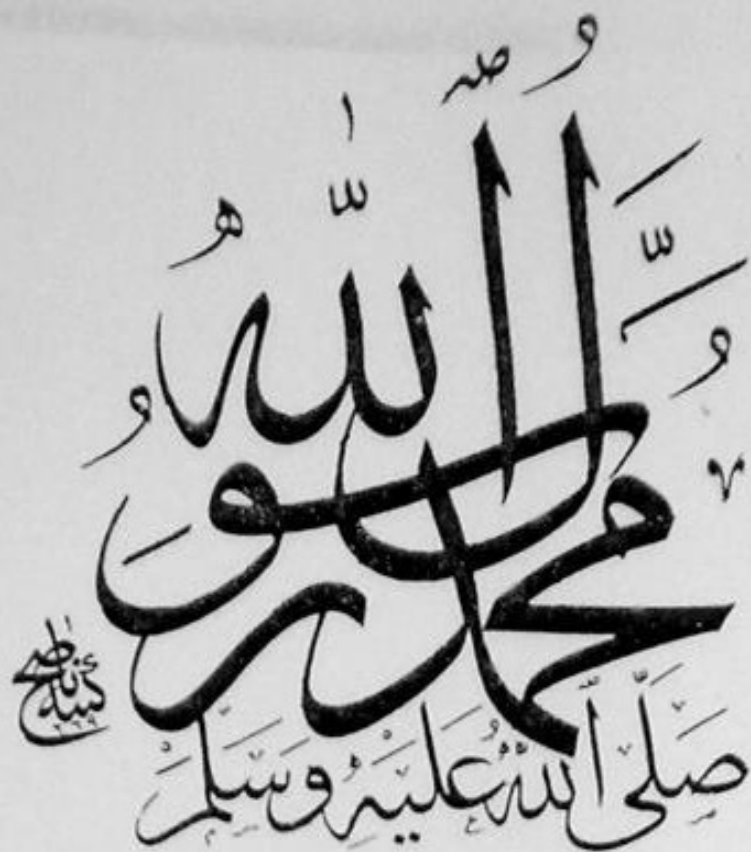 مُحَمَّدٌ رَسُولُ اللّٰهِ
صَلَّى اللّٰهُ عَلَيْهِ وَسَلَّمَ